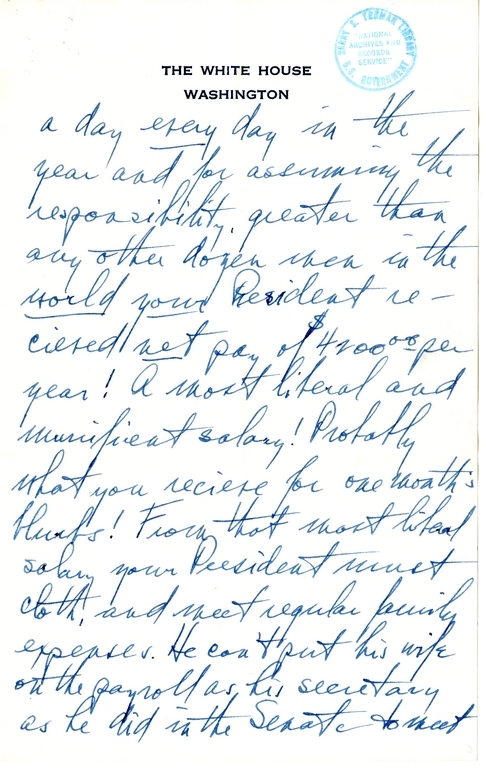 HARRY S. TRUMAN LIBRARY
"NATIONAL
ARCHIVES AND
RECORDS
SERVICE"
U.S. GOVERNMENT
THE WHITE HOUSE
WASHINGTON
a day every day in the
year and for assuming the
responsibility, greater than
any other dozen men in the
world your President re-
cieved net pay of $4200 00 per
year! A most liberal and
munificent salary! Probably
what you recieve for one month's
blurbs! From that most liberal
salary your President must
cloth, and meet regular family
expenses. He can't put his wife
on the payroll as his secretary
as he did in the Senate to meet